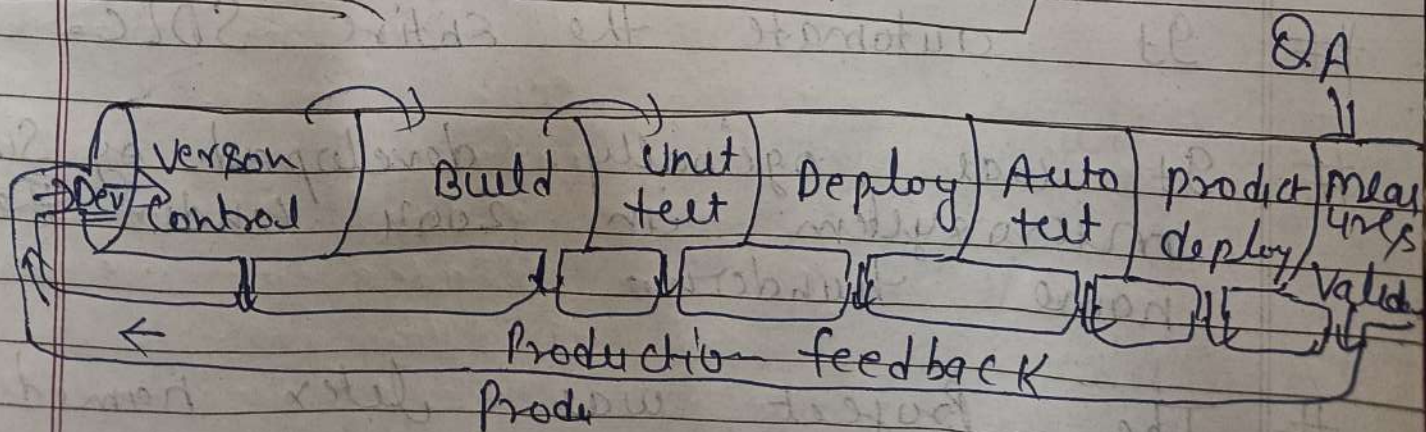 QA
Dev
Verson
Control
Build
Unit
test
Deploy
Auto
test
product
deploy
Meas
ures
Valid
Production feedback
Produ